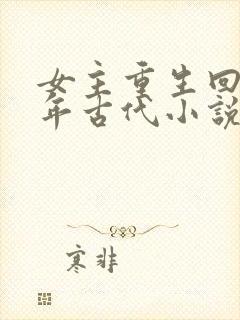 女主重生回
年古代小說
寒非